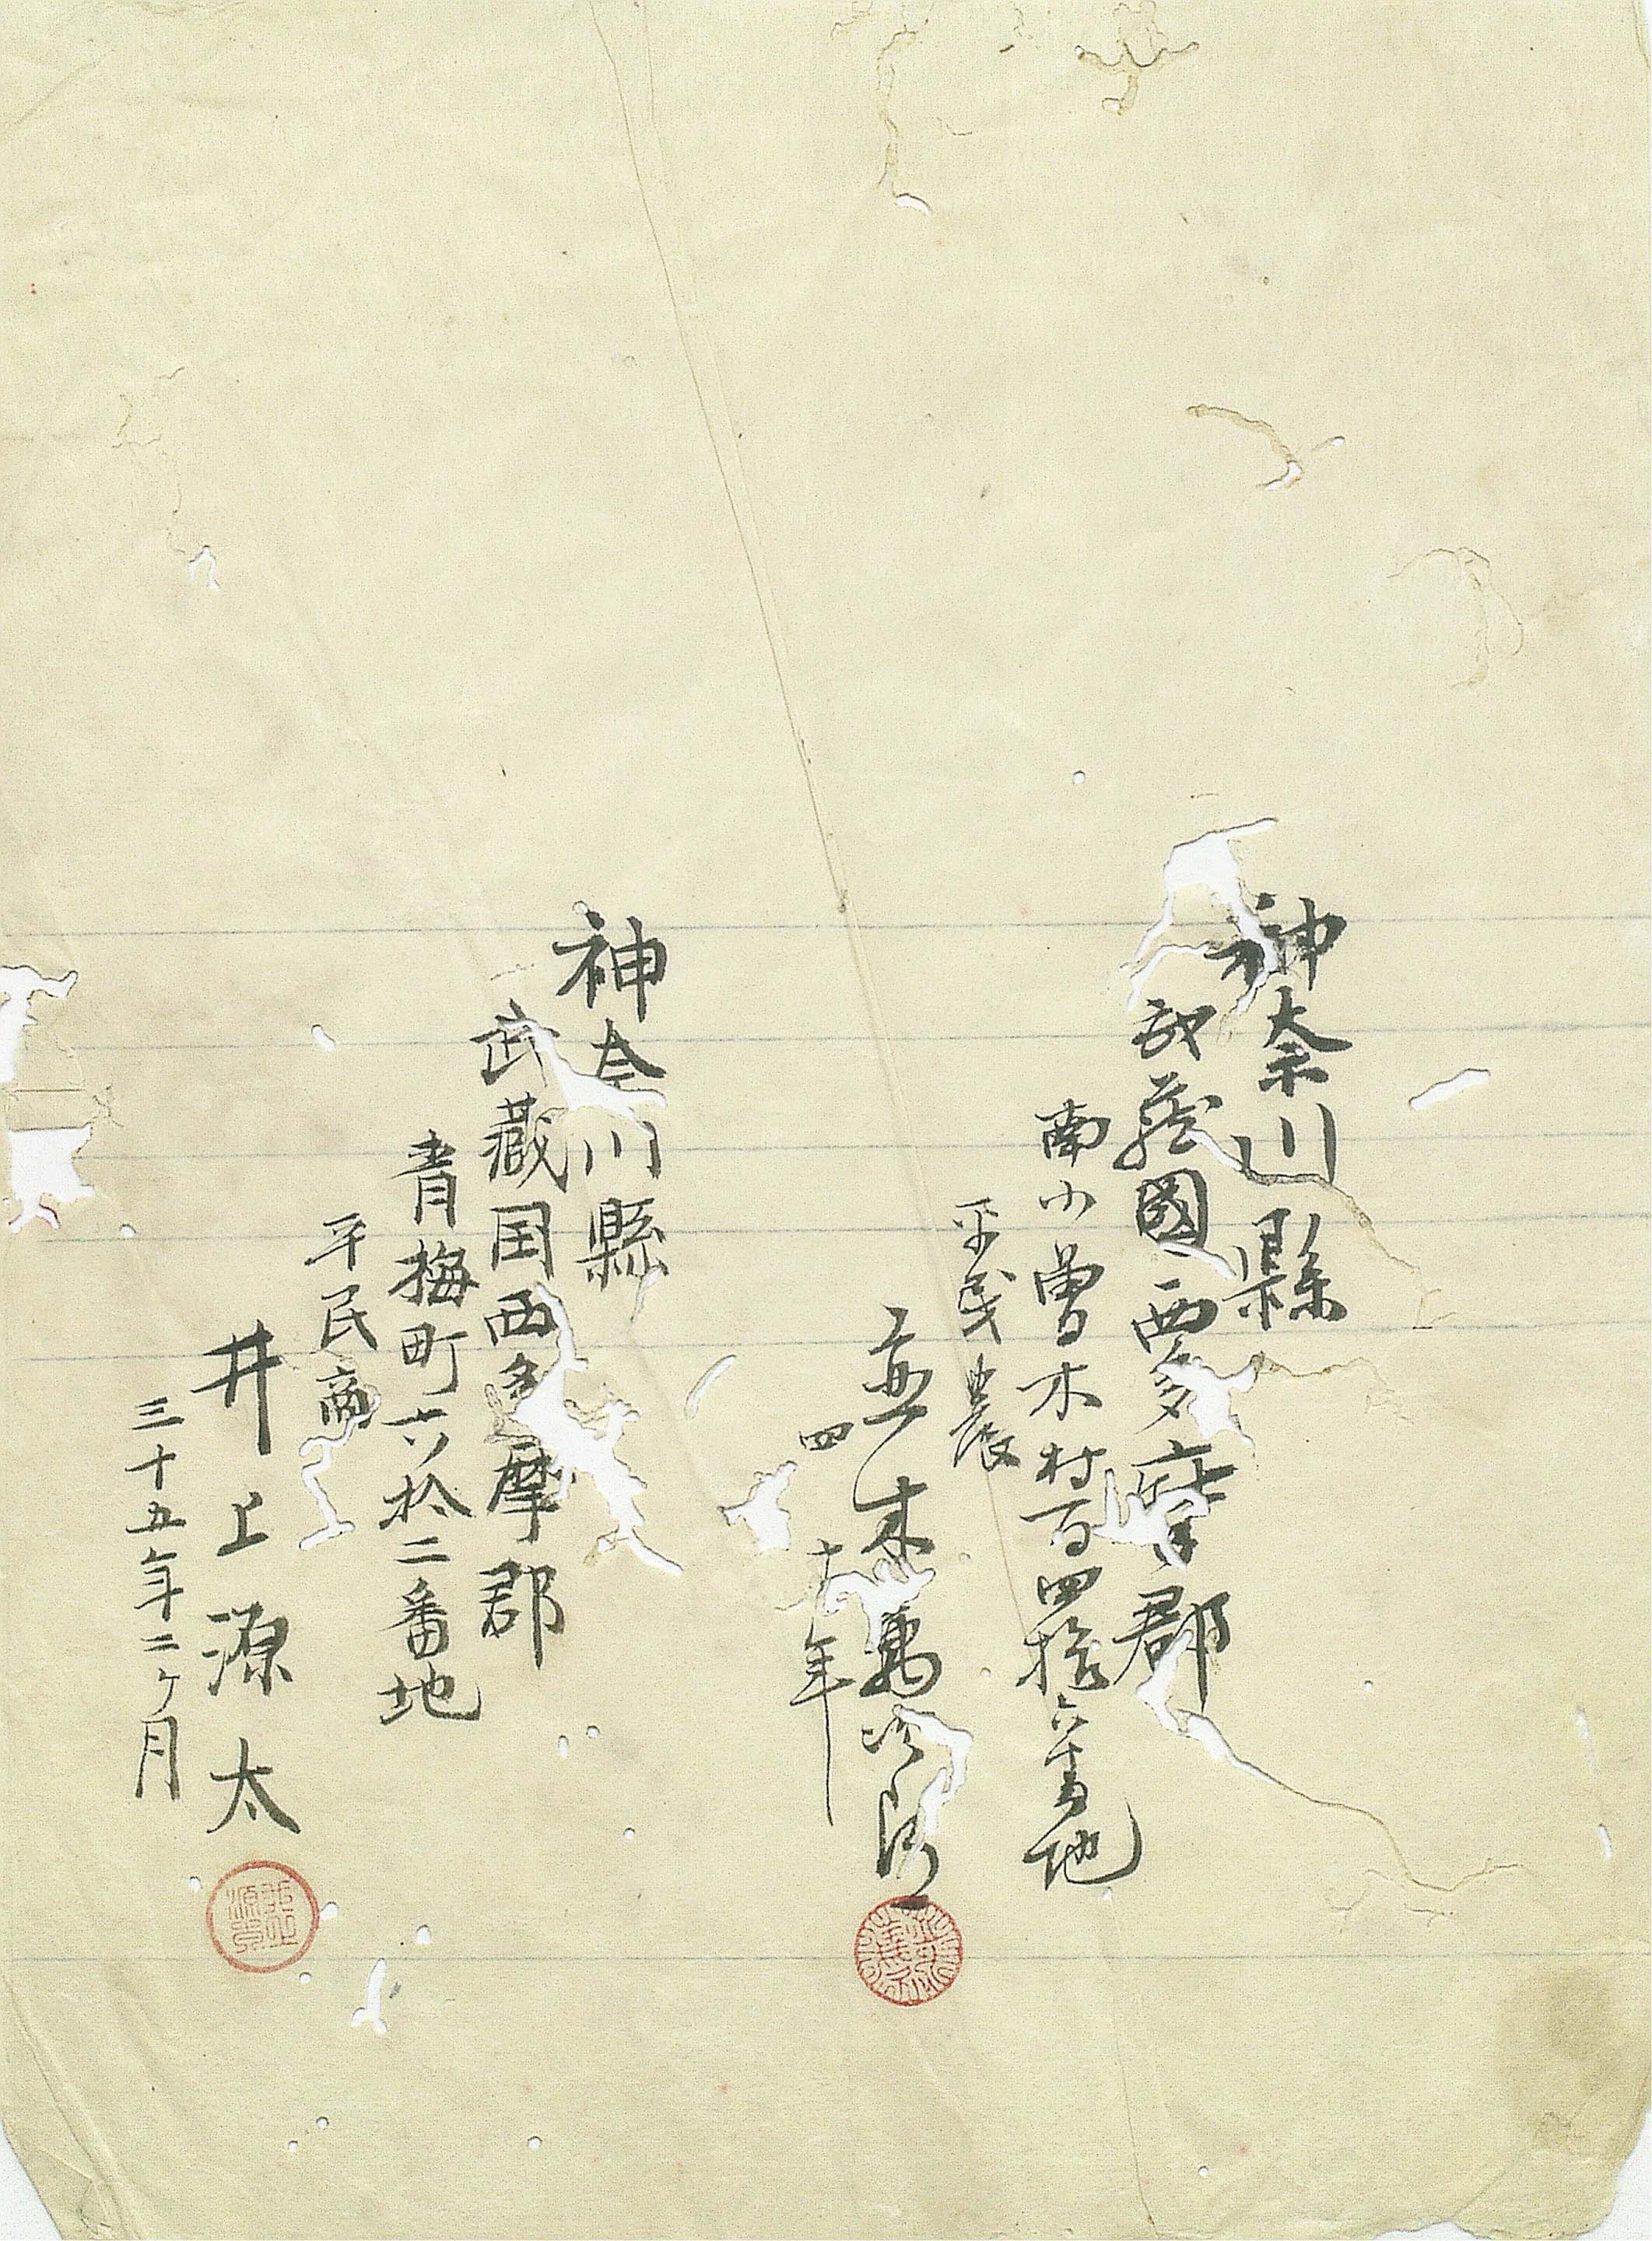 神奈川縣
武藏國西多摩郡
南小曽木村百四拾六番地
平民農
並木萬次郎
四十年
神奈川縣
武藏国西多摩郡
青梅町六拾二番地
平民商
井上源太
三十五年二ヶ月